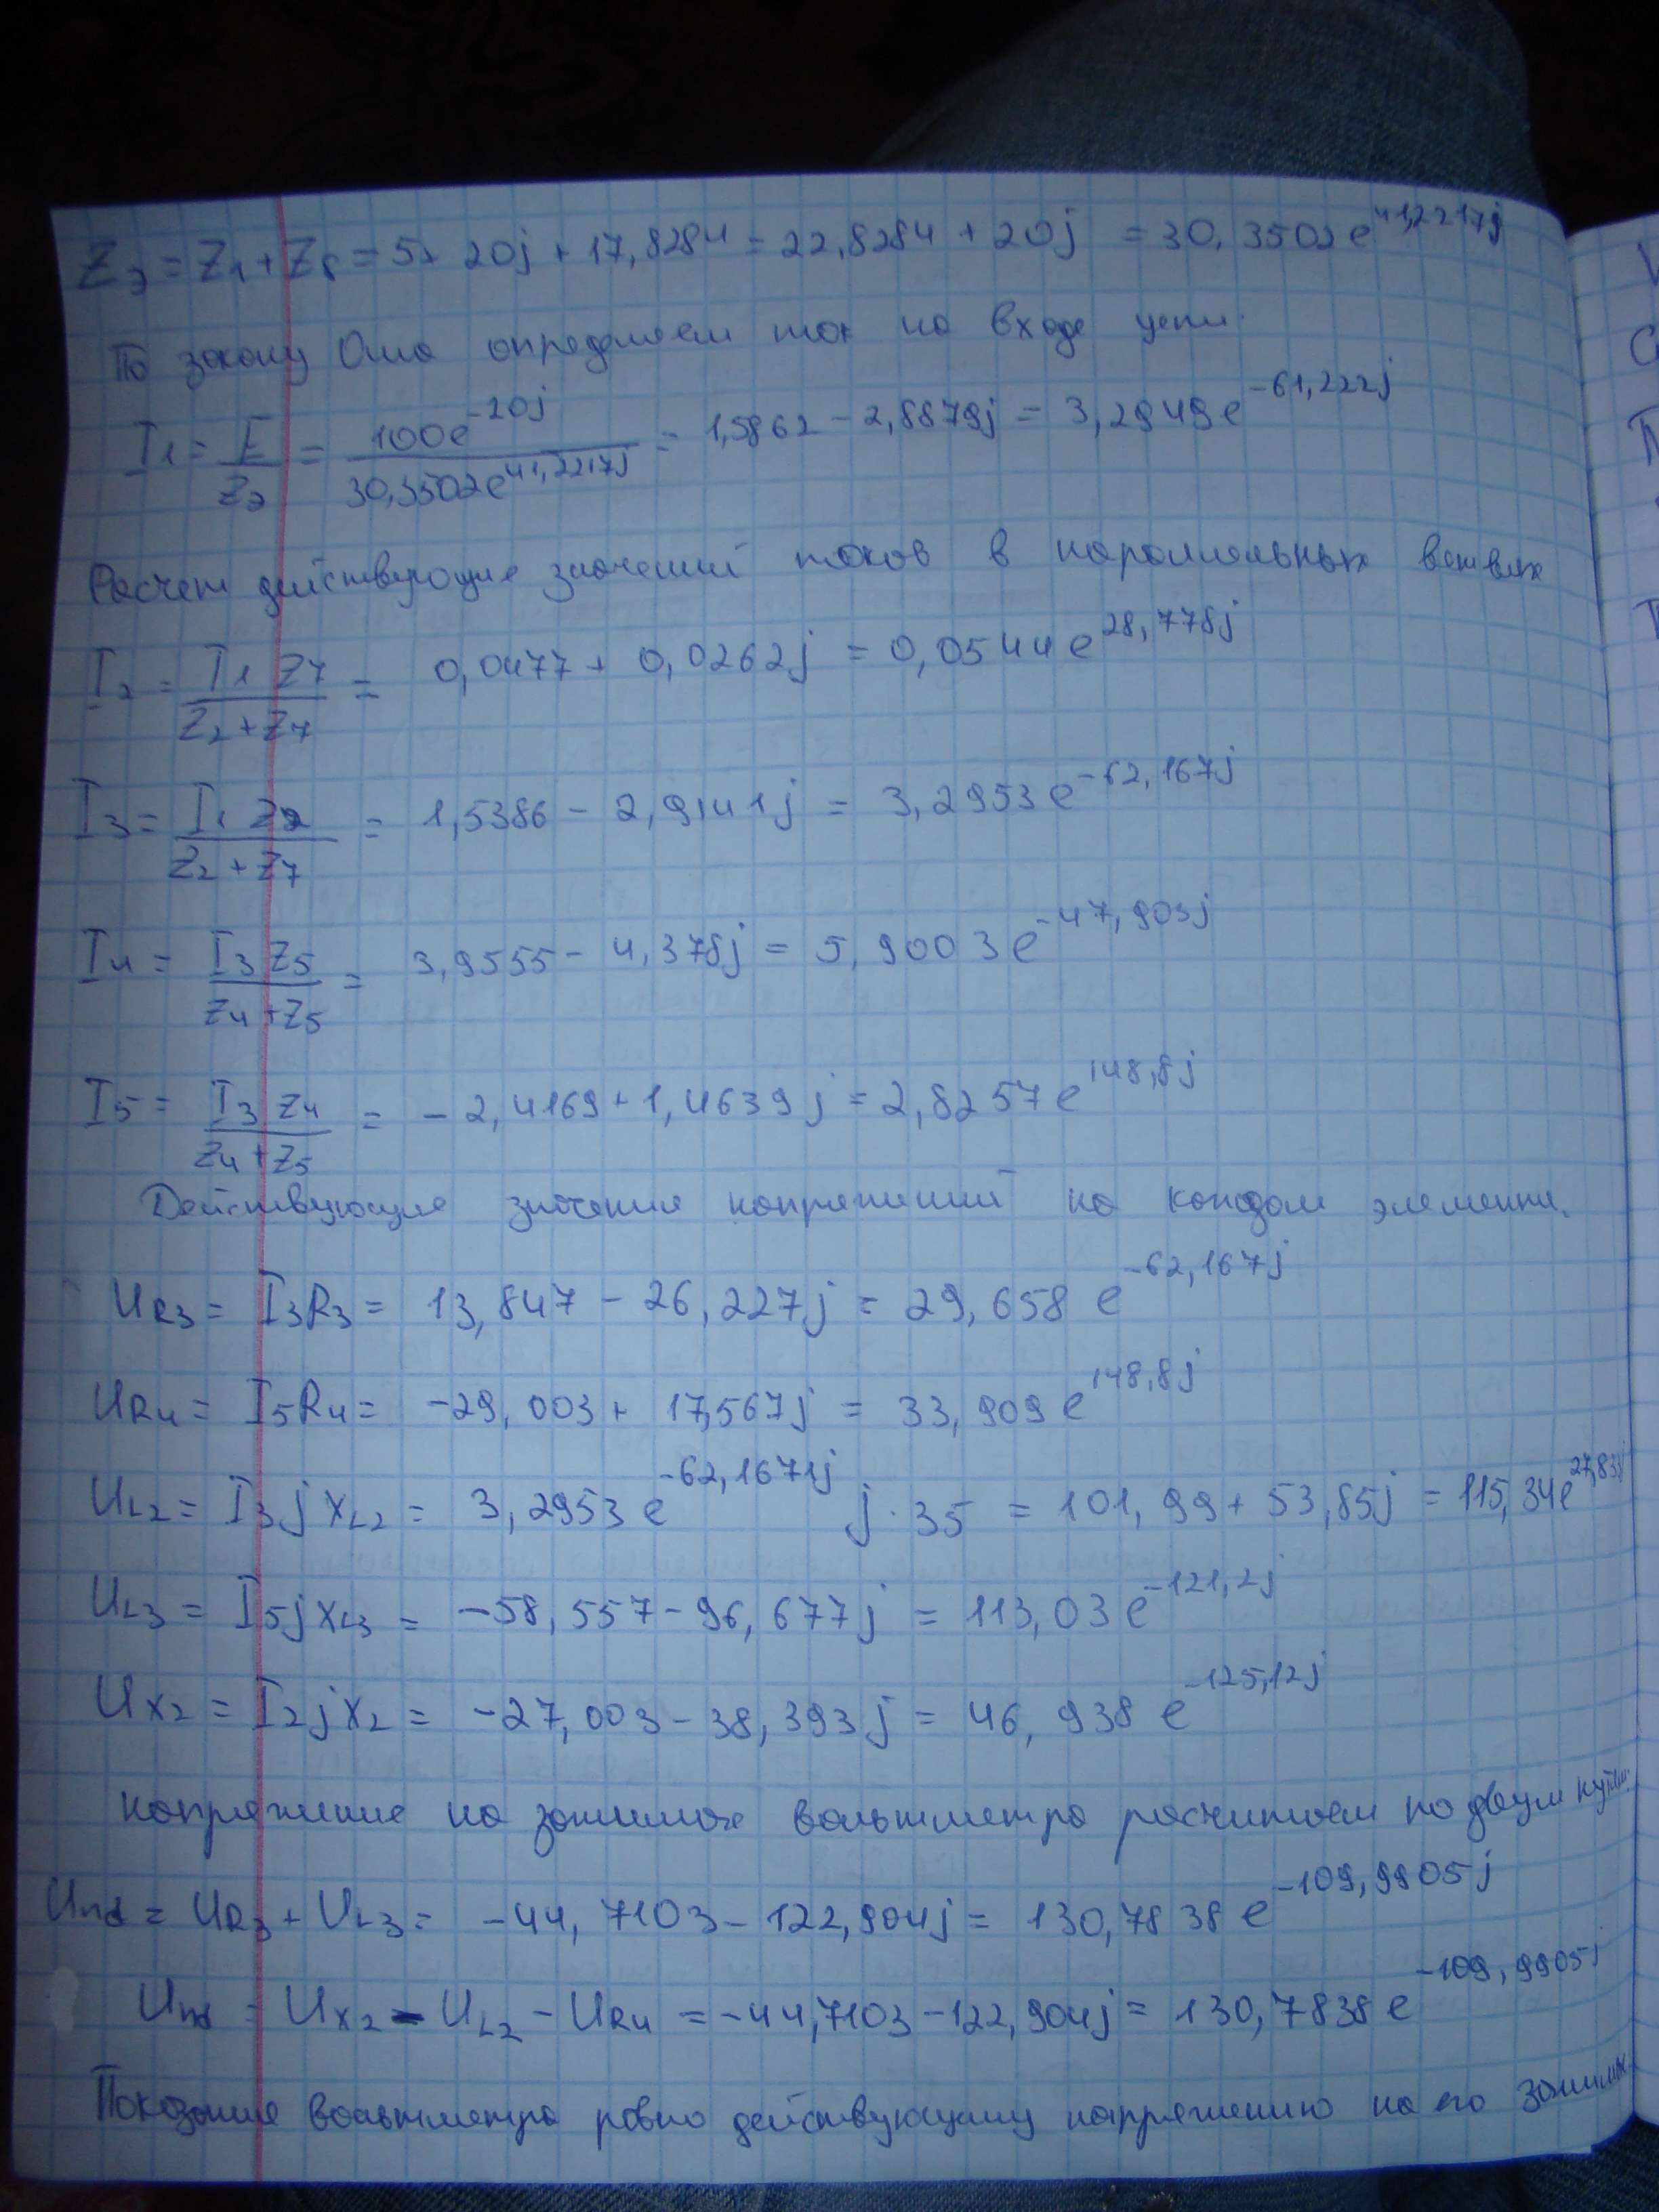 Zэ = Z1 + Z8 = 5+ 20j + 17,8284 = 22,8284 + 20j = 30,3502e^41,2217j
По закону Ома определяем ток на входе цепи.
I1 = E/Zэ = 100e^-20j / 30,3502e^41,2217j = 1,5862 - 2,8879j = 3,2949e^-61,222j
Расчет действующие значений токов в параллельных ветвях
I2 = I1 Z7 / Z2+Z7 = 0,0477 + 0,0262j = 0,0544e^28,778j
I3 = I1 Z2 / Z2+Z7 = 1,5386 - 2,9141j = 3,2953e^-62,167j
I4 = I3 Z5 / Z4+Z5 = 3,9555 - 4,378j = 5,9003e^-47,903j
I5 = I3 Z4 / Z4+Z5 = -2,4169 + 1,4639j = 2,8257e^148,8j
Действующие значения напряжений на каждом элементе.
UR3 = I3R3 = 13,847 - 26,227j = 29,658 e^-62,167j
UR4 = I5R4 = -29,003 + 17,567j = 33,909e^148,8j
UL2 = I3jXL2 = 3,2953e^-62,1671j j·35 = 101,99 + 53,85j = 115,34e^27,833j
UL3 = I5jXL3 = -58,557 - 96,677j = 113,03e^-121,2j
UX2 = I2jX2 = -27,003 - 38,393j = 46,938 e^-125,12j
напряжение на зажимах вольтметра расчитаем по двум путям.
= UR3 + UL3 = -44,7103 - 122,904j = 130,7838 e^-109,9905j
= UX2 - UL2 - UR4 = -44,7103 - 122,904j = 130,7838e^-109,9905j
Показание вольтметра равно действующему напряжению на его зажимах